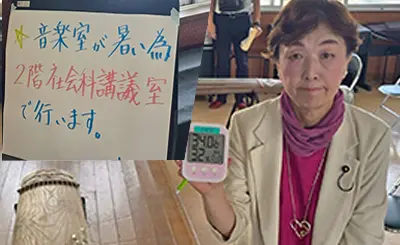 ※ 音楽室が暑い為
2階社会科講議室
で行います。
34.0
32